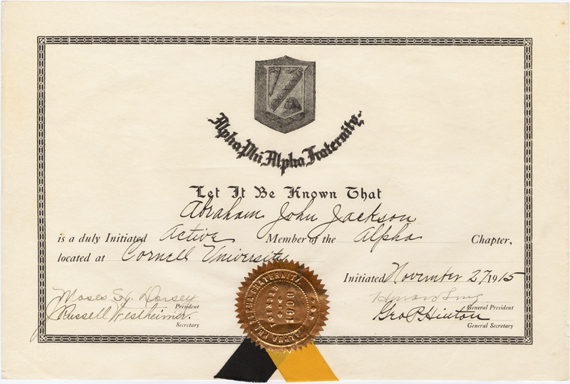 Alpha Phi Alpha Fraternity
Let It Be Known That
Abraham John Jackson
is a duly Initiated Active Member of the Alpha Chapter,
located at Cornell University
Initiated November 27, 1915
Moses S. Dorsey
President
General President
J Russell Westheimer
Secretary
Geo P Hinton
General Secretary